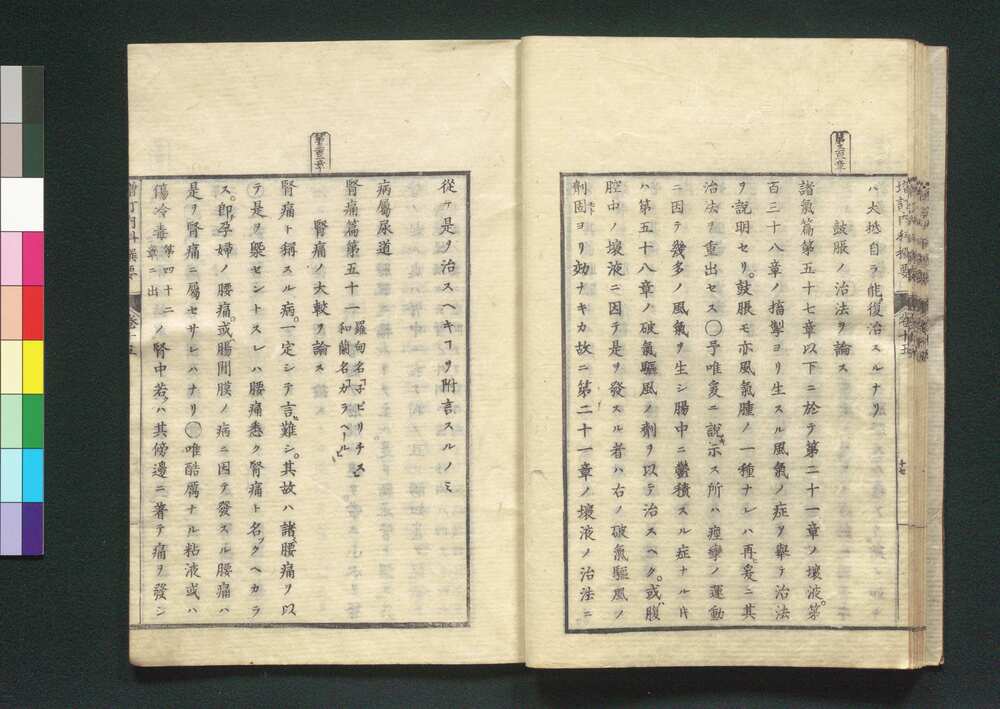 増訂内科撰要
卷十五
十七
ハ大抵自ラ能復治スルナリ
鼓脹ノ治法ヲ論ス
諸氣篇第五十七章以下ニ於テ第二十一章ノ壞液。第
百三十八章ノ搐掣ヨリ生スル風氣ノ症ヲ擧テ治法
ヲ說明セリ。鼓脹モ亦風氣腫ノ一種ナレハ再爰ニ其
治法ヲ重出セス〇予唯爰ニ說キ示ス所ハ痙攣ノ運動
ニ因テ幾多ノ風氣ヲ生シ腸中ニ鬱積スル症ナル片
ハ第五十八章ノ破氣驅風ノ劑ヲ以テ治スヘク。或腹
腔中ノ壞液ニ因テ是ヲ發スル者ハ右ノ破氣驅風ノ
劑固ヨリ効ナキカ故ニ第二十一章ノ壞液ノ治法ニ
從ヿ是ヲ治スヘキヿヲ附言スルノミ
病屬尿道
腎痛篇第五十一
羅甸名「子ピリチス」
和蘭名「ガラヘール」
腎痛ノ大較ヲ論ス
腎痛ト稱スル病。一定シテ言ヒ難シ。其故ハ諸腰痛ヲ以
テ是ヲ槩セントスレハ腰痛悉ク腎痛ト名ツクヘカラ
ス。即孕婦ノ腰痛。或腸間膜ノ病ニ因テ發スル腰痛ハ
是ヲ腎痛ニ屬セサレハナリ〇唯酷厲ナル粘液或ハ
傷冷毒第四十二章ニ出ノ腎中若ハ其傍邊ニ著テ痛ヲ發シ
増訂内科撰要
卷十五